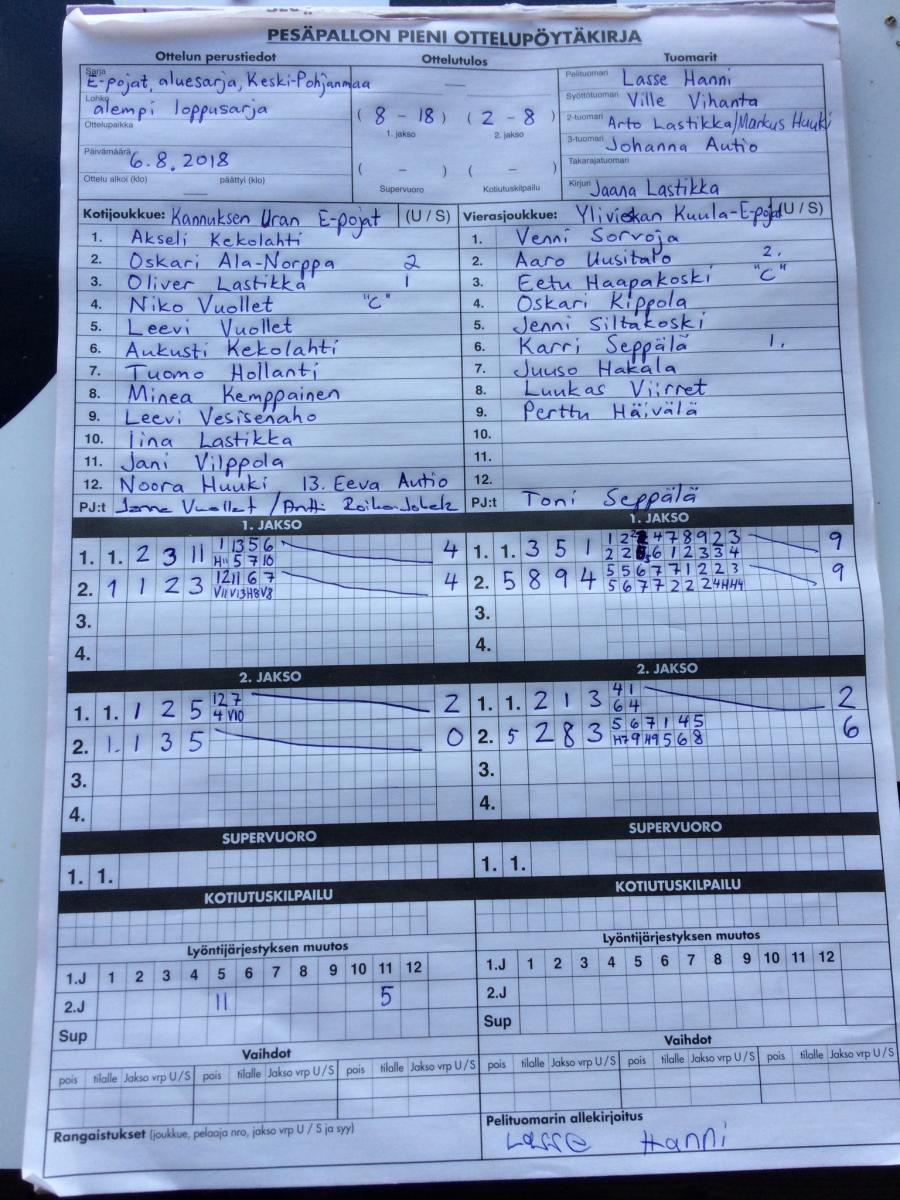 PESÄPALLON PIENI OTTELUPÖYTÄKIRJA
Ottelun perustiedot
Sarja E-pojat, aluesarja, Keski-Pohjanmaa
Lohko alempi loppusarja
Ottelupaikka
Päivämäärä 6.8.2018
Ottelu alkoi (klo) päättyi (klo)
Ottelutulos
( 8 - 18 ) ( 2 - 8 )
1. jakso 2. jakso
( - ) ( - )
Supervuoro Kotiutuskilpailu
Tuomarit
Pelituomari Lasse Hanni
Syöttötuomari Ville Vihanta
2-tuomari Arto Lastikka/Markus Huuki
3-tuomari Johanna Autio
Takarajatuomari
Kirjuri Jaana Lastikka
Kotijoukkue: Kannuksen Uran E-pojat (U / S)
1. Akseli Kekolahti
2. Oskari Ala-Norppa 2
3. Oliver Lastikka 1
4. Niko Vuollet "C"
5. Leevi Vuollet
6. Aukusti Kekolahti
7. Tuomo Hollanti
8. Minea Kemppainen
9. Leevi Vesisenaho
10. Iina Lastikka
11. Jani Vilppola
12. Noora Huuki 13. Eeva Autio
PJ:t Vuollet / Antti
Vierasjoukkue: Ylivieskan Kuula-E-pojat (U / S)
1. Venni Sorvoja
2. Aaro Uusitalo 2.
3. Eetu Haapakoski "C"
4. Oskari Kippola
5. Jenni Siltakoski
6. Karri Seppälä 1.
7. Juuso Hakala
8. Luukas Viirret
9. Perttu Häivälä
10.
11.
12.
PJ:t Toni Seppälä
1. JAKSO
1. 1. 2 3 11 1 13 5 6 4
5 7 10
2. 1 1 2 3 12 11 6 7 4
V11 V13 H8 V8
3.
4.
2. JAKSO
1. 1. 1 2 5 12 7 2
4 V10
2. 1. 1 3 5 0
3.
4.
SUPERVUORO
1. 1.
KOTIUTUSKILPAILU
Lyöntijärjestyksen muutos
1.J 1 2 3 4 5 6 7 8 9 10 11 12
2.J 11 5
Sup
Vaihdot
pois tilalle Jakso vrp U / S pois tilalle Jakso vrp U / S pois tilalle Jakso vrp U / S
Rangaistukset (joukkue, pelaaja nro, jakso vrp U / S ja syy)
1. JAKSO
1. 1. 3 5 1 1 2 2 4 7 8 9 2 3 9
2 2 6 1 2 3 3 4
2. 5 8 9 4 5 5 6 7 7 1 2 2 3 9
5 6 7 7 2 2 2 4 H4
3.
4.
2. JAKSO
1. 1. 2 1 3 4 1 2
6 4
2. 5 2 8 3 5 6 7 1 4 5 6
H7 9 H9 5 6 8
3.
4.
SUPERVUORO
1. 1.
KOTIUTUSKILPAILU
Lyöntijärjestyksen muutos
1.J 1 2 3 4 5 6 7 8 9 10 11 12
2.J
Sup
Vaihdot
pois tilalle Jakso vrp U / S pois tilalle Jakso vrp U / S pois tilalle Jakso vrp U / S
Pelituomarin allekirjoitus
Lasse Hanni